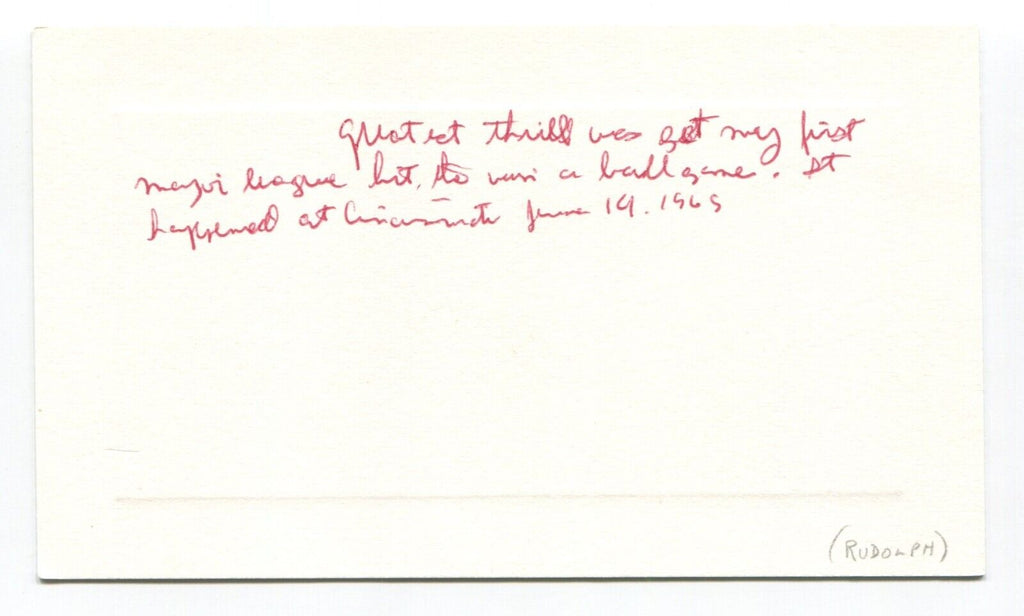 greatest thrill was get my first
major league hit, to win a ball game. It
happened at Cincinnati June 19. 1969
(RUDOLPH)